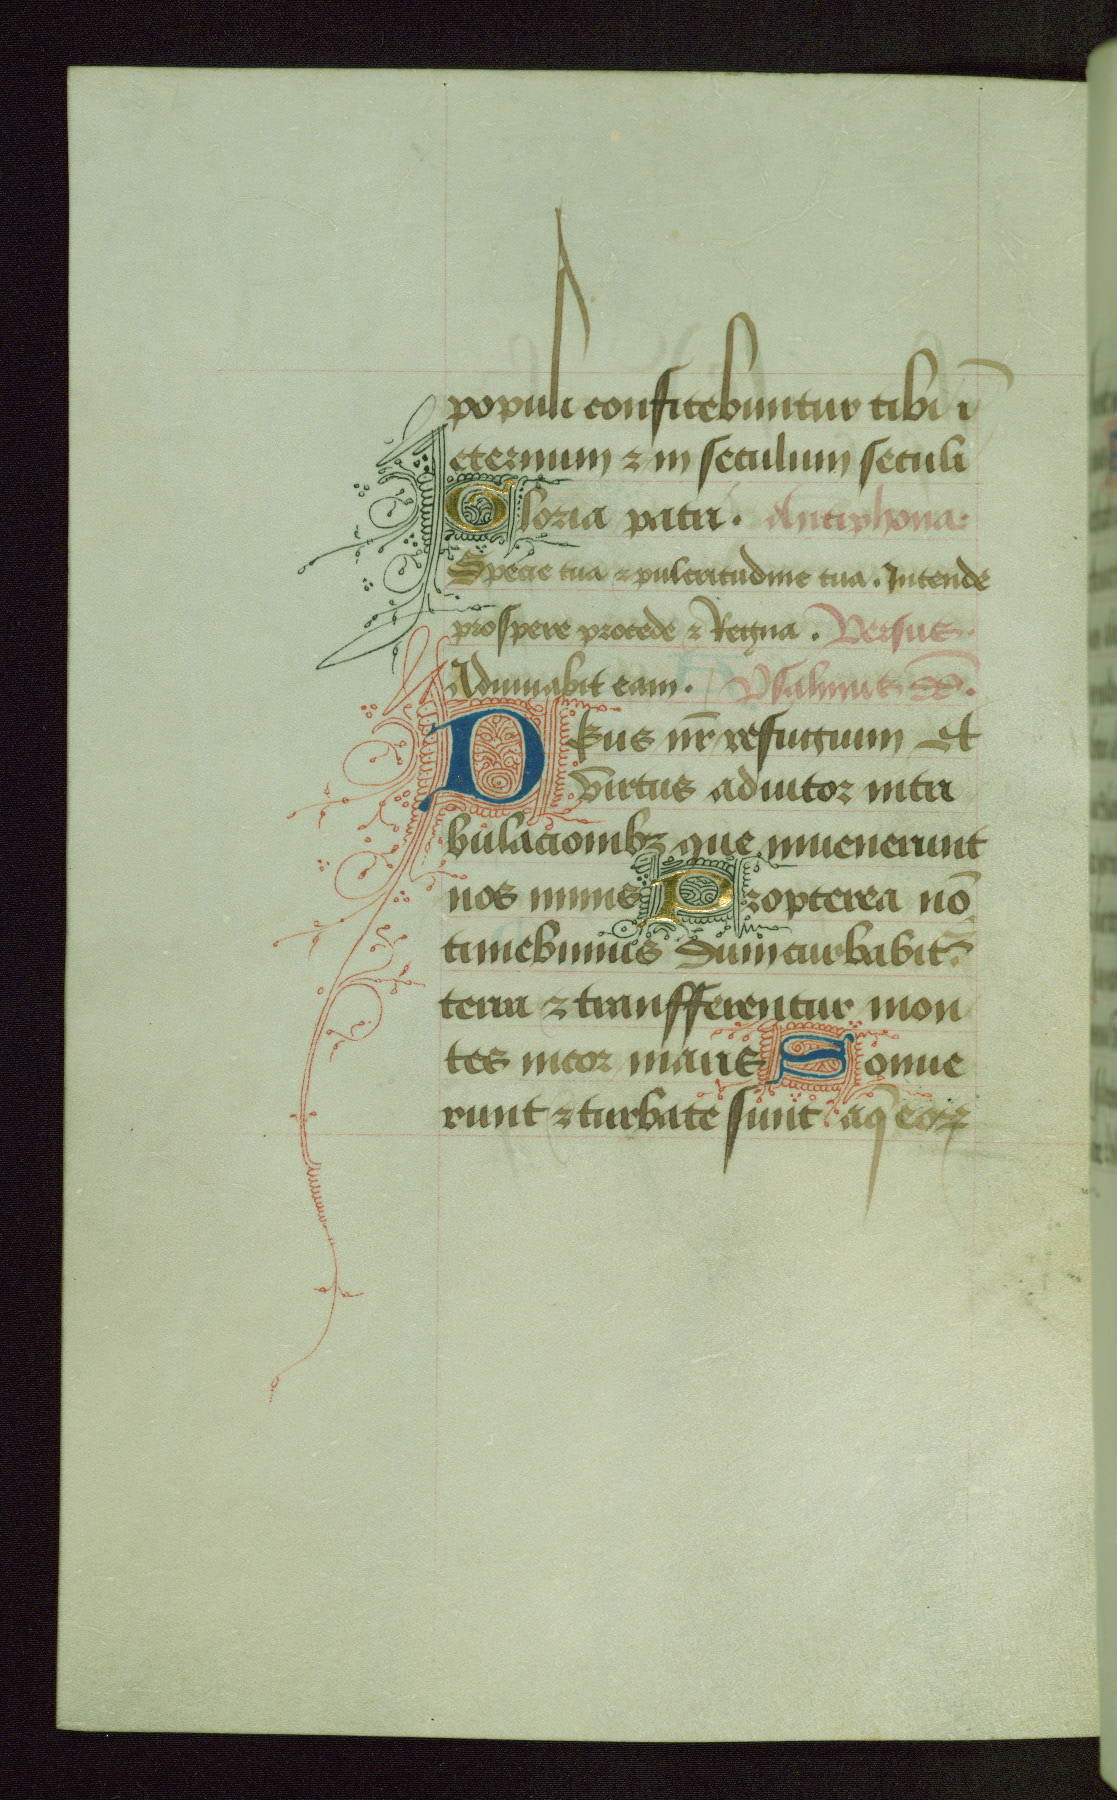 populi confitebuntur tibi ī
eternum ⁊ in seculum seculi
Gloria patri. Antiphona:
Specie tua ⁊ pulcritudine tua. Intende
prospere procede ⁊ Regna. Versus.
Adiuuabit eam. Psalmus
Deus nr̄ refugium Et
virtus adiutor in tri
bulacionibꝫ que inuenerunt
nos nimis Propterea nō
timebimus Dum turbabit᷑
terra ⁊ transfferentur mon
tes in cor maris Sonue
runt ⁊ turbate sunt aq̄ eoꝝ